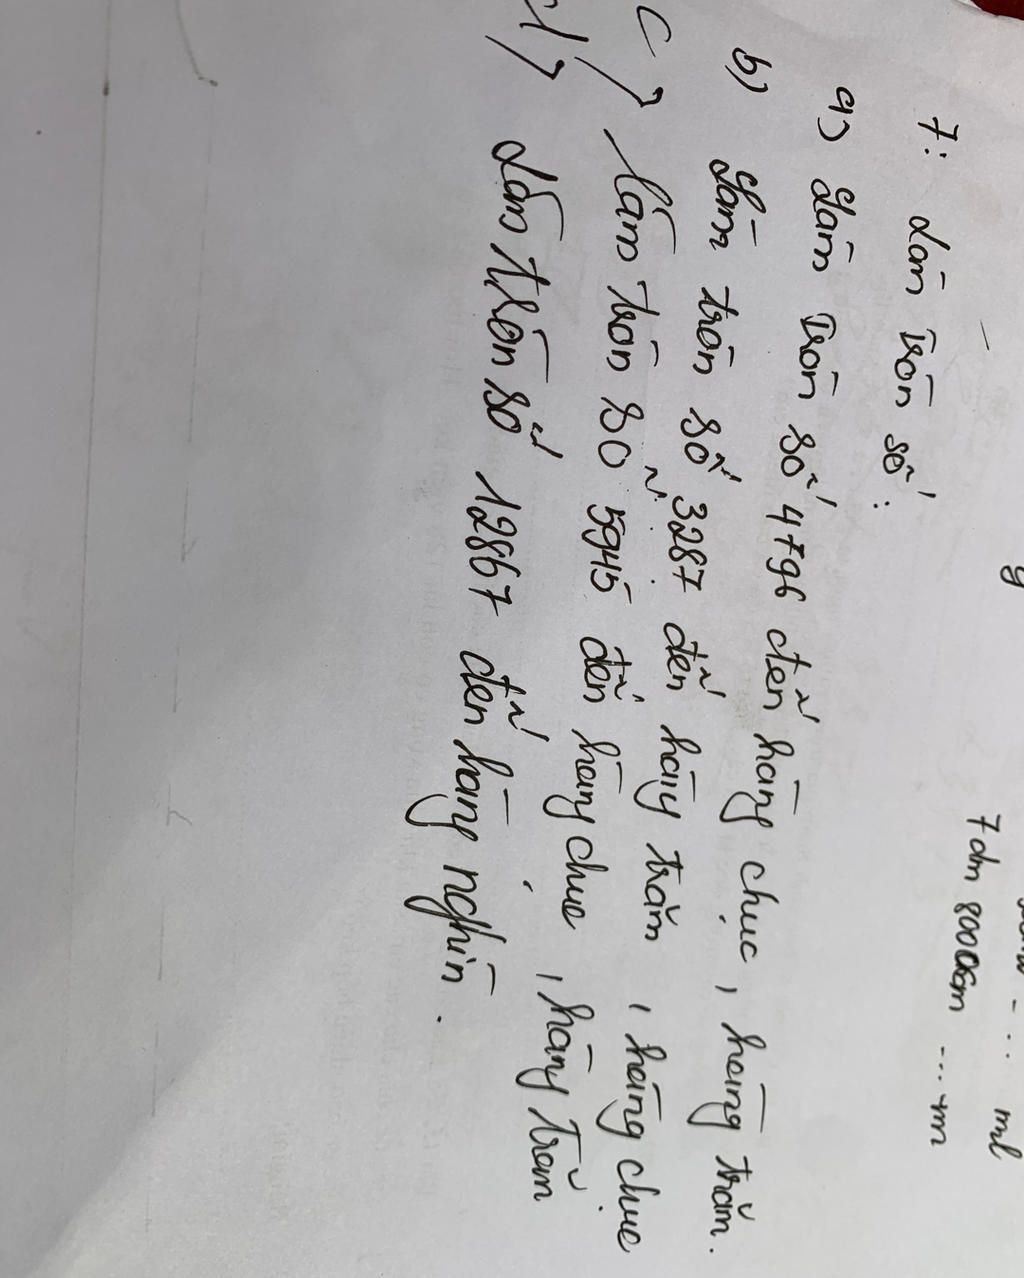 ml
7dm 8000cm ....m
7: Làm tròn số:
a) Làm tròn số 4796 đến hàng chục, hàng trăm.
b) Làm tròn số 3287 đến hàng trăm, hàng chục
c) Làm tròn số 5945 đến hàng chục, hàng trăm
d) Làm tròn số 12867 đến hàng nghìn.